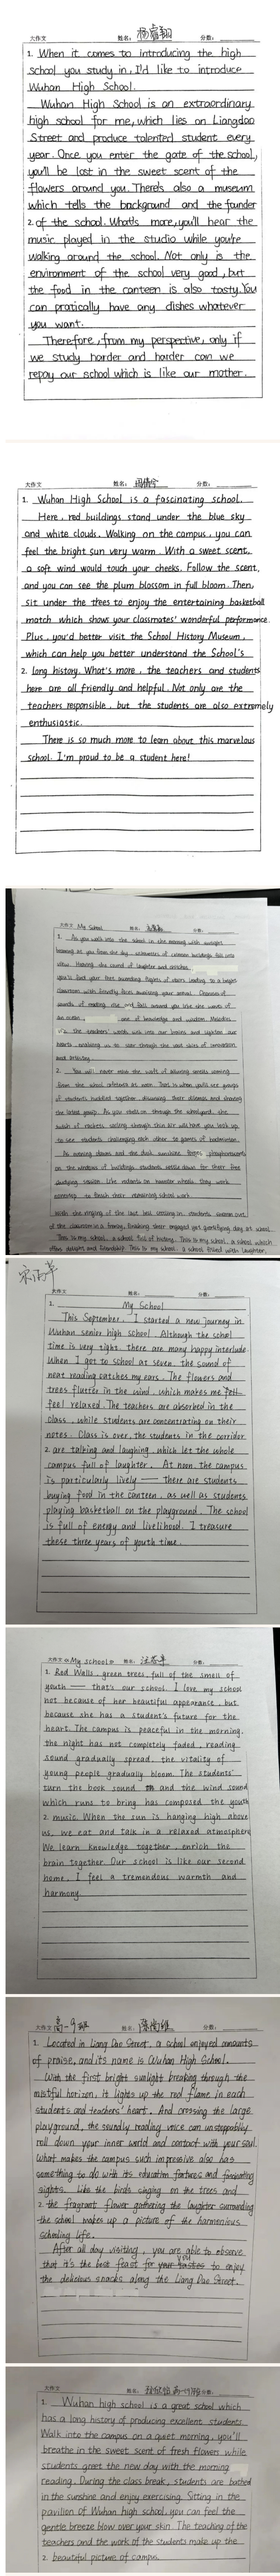 大作文 姓名: 分数:
1. When it comes to introducing the high
school you study in, I'd like to introduce
Wuhan High School.
Wuhan High School is an extraordinary
high school for me, which lies on Liangdao
Street and produce talented student every
year. Once you enter the gate of the school,
you'll be lost in the sweet scent of the
flowers around you. There's also a museum
which tells the background and the founder
2. of the school. What's more, you'll hear the
music played in the studio while you're
walking around the school. Not only is the
environment of the school very good, but
the food in the canteen is also tasty. You
can pratically have any dishes whatever
you want.
Therefore, from my perspective, only if
we study harder and harder can we
repay our school which is like our mother.
大作文 姓名: 分数:
1. Wuhan High School is a fascinating school.
Here, red buildings stand under the blue sky
and white clouds. Walking on the campus, you can
feel the bright sun very warm. With a sweet scent,
a soft wind would touch your cheeks. Follow the scent,
and you can see the plum blossom in full bloom. Then,
sit under the trees to enjoy the entertaining basketball
match which shows your classmates' wonderful performance.
Plus, you'd better visit the School History Museum,
which can help you better understand the School's
2. long history. What's more, the teachers and students
here are all friendly and helpful. Not only are the
teachers responsible, but the students are also extremely
enthusiastic.
There is so much more to learn about this marvelous
school. I'm proud to be a student here!
大作文 My School 姓名: 分数:
1. As you walk into the school in the morning with sunlight
beaming as you from the sky, silhouettes of crimson buildings fall into
view. Hearing the sound of laughter and
you'll find your feet ascending flights of stairs leading to a larger
classroom with friendly faces awaiting your arrival. Choruses of
sounds of reading rise and fall around you like the waves of
an ocean, one of knowledge and wisdom. Melodies
the teachers' words will sink our brains and lighten our
hearts, enabling us to soar through the vast skies of imagination
and artistry.
2. You will never miss the wafts of alluring smells coming
from the school cafeteria at noon. That is when you'll see groups
of students huddled together discussing their dilemmas and sharing
the latest gossip. As you stroll through the schoolyard, the
swish of rackets slicing through thin air will have you look up
to see students challenging each other to games of badminton.
As evening dawns and the dusk sunshine
on the windows of buildings, students settle down for their free
studying session. Like rodents on hamster wheels, they work
to finish their remaining school work.
With the ringing of the last bell settling in, students
of the classroom in a frenzy, finishing their engaged yet gratifying day at school.
This is my school, a school full of history. This is my school, a school which
offers delight and friendship. This is my school, a school filled with laughter.
大作文 姓名: 分数:
1. My School
This September, I started a new journey in
Wuhan senior high school. Although the schol
time is very tight, there are many happy interlude.
When I got to school at seven, the sound of
neat reading catches my ears. The flowers and
trees flutter in the wind, which makes me
feel relaxed. The teachers are absorbed in the
class, while students are concentrating on their
notes. Class is over, the students in the corridor
2. are talking and laughing, which let the whole
campus full of laughter. At noon, the campus
is particularly lively — there are students
buying food in the canteen, as well as students
playing basketball on the playground. The school
is full of energy and livelihood. I treasure
these three years of youth time.
大作文 《My school》 姓名: 分数:
1. Red Walls, green trees, full of the smell of
youth — that's our school. I love my school
not because of her beautiful appearance, but
because she has a student's future for the
heart. The campus is peaceful in the morning,
the night has not completely faded, reading
sound gradually spread, the vitality of
young people gradually bloom. The students'
turn the book sound and the wind sound
which runs to bring has composed the youth
2. music. When the sun is hanging high above
us, we eat and talk in a relaxed atmosphere
We learn knowledge together, enrich the
brain together. Our school is like our second
home. I feel a tremendous warmth and
harmony.
大作文 高一9班 姓名: 分数:
1. Located in Liang Dao Street, a school enjoyed amounts
of praise, and its name is Wuhan High School.
With the first bright sunlight breaking through the
mistful horizon, it lights up the red flame in each
students and teachers' heart. And crossing the large
playground, the soundly reading voice can unstoppably
roll down your inner world and contact with your soul.
What makes the campus such impressive also has
something to do with its education fortunes and fascinating
sights. Like the birds singing on the trees and
2. the fragrant flower gathering the laughter surrounding
the school makes up a picture of the harmenious
schooling life.
After all day visiting, you are able to observe
that it's the best feast for you to enjoy
the delicious snacks along the Liang Dao Street.
大作文 姓名: 分数:
1. Wuhan high school is a great school which
has a long history of producing excellent students
Walk into the campus on a quiet morning, you'll
breathe in the sweet scent of fresh flowers while
students greet the new day with the morning
reading. During the class break, students are bathed
in the sunshine and enjoy exercising. Sitting in the
pavilion of Wuhan high school, you can feel the
gentle breeze blow over your skin. The teaching of the
teachers and the work of the students make up the
2. beautiful picture of campus.